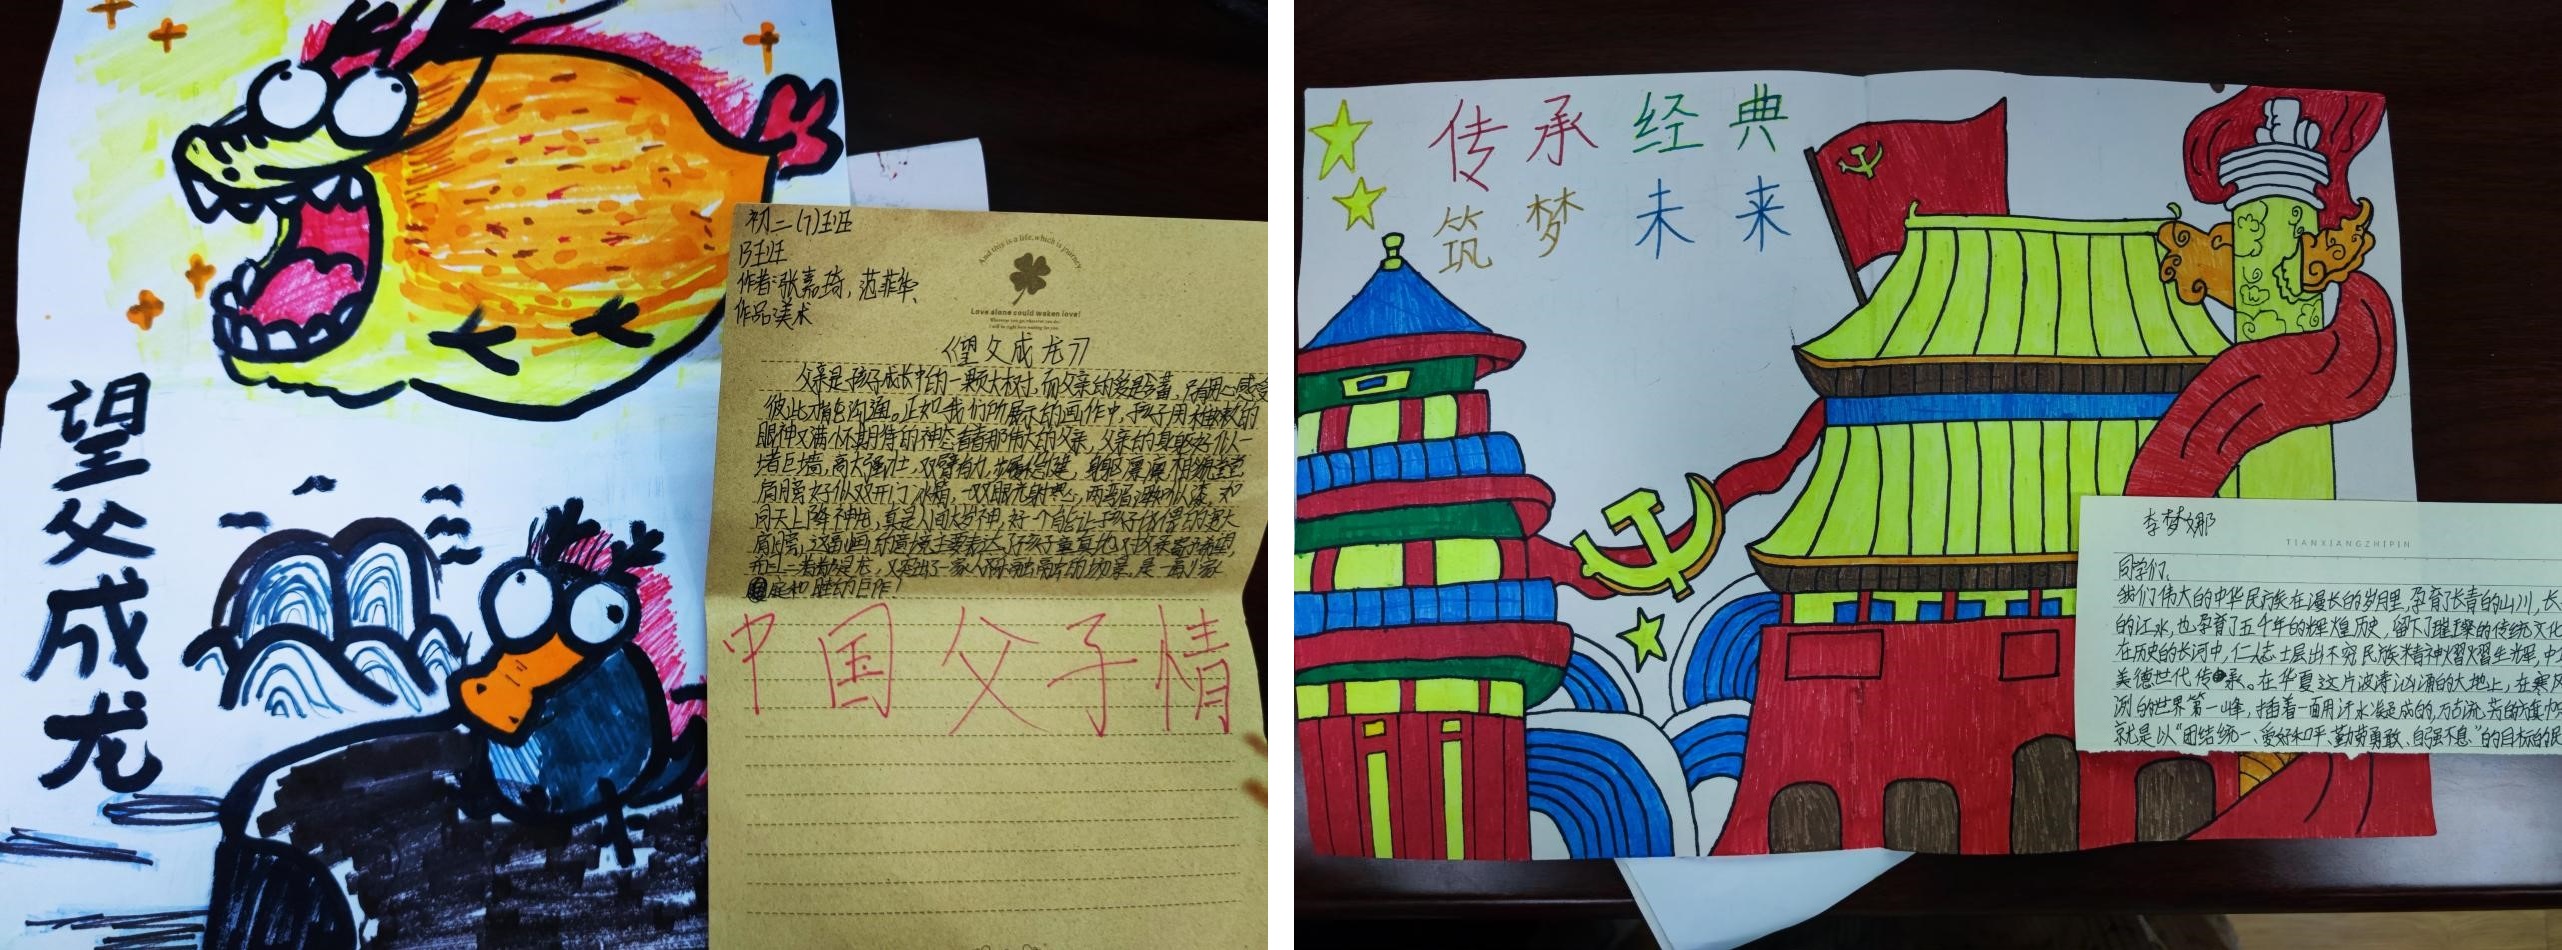 望父成龙
初二(7)班
B班
作者:张嘉琦,范菲华
作品:美术
And this is a life, which is journey.
Love alone could waken love!
Wherever you go, whatever you do,
I will be right here waiting for you.
《望父成龙》
父亲是孩子成长中的一颗大树,而父亲的爱是含蓄,只有用心感受
彼此才能沟通。正如我们所展示的画作中,孩子用稚嫩的
眼神又满怀期待的神态看着那伟大的父亲,父亲的身躯好似一
堵巨墙,高大强壮,双臂有力,步履稳健,身躯凛凛,相貌堂堂
肩膀好似双开门冰箱,一双眼光射寒心,两弯眉浑如似漆,如
同天上降神龙,真是人间太岁神,好一个能让孩子依偎的宽大
肩膀,这副画的意境主要表达了孩子童真地对父亲寄予希望,
庭和睦的巨作!
中国父子情
传承经典
筑梦未来
李梦娜
TIANXIANGZHIPIN
同学们,
我们伟大的中华民族在漫长的岁月里,孕育了长青的山川,长
的江水,也孕育了五千年的辉煌历史,留下了璀璨的传统文化
在历史的长河中,仁人志士层出不穷,民族精神熠熠生辉,中华
美德世代传承。在华夏这片波涛汹涌的大地上,在寒风
冽的世界第一峰,插着一面用汗水凝成的,万古流芳的旗帜
就是以“团结统一、爱好和平、勤劳勇敢、自强不息”的目标的民